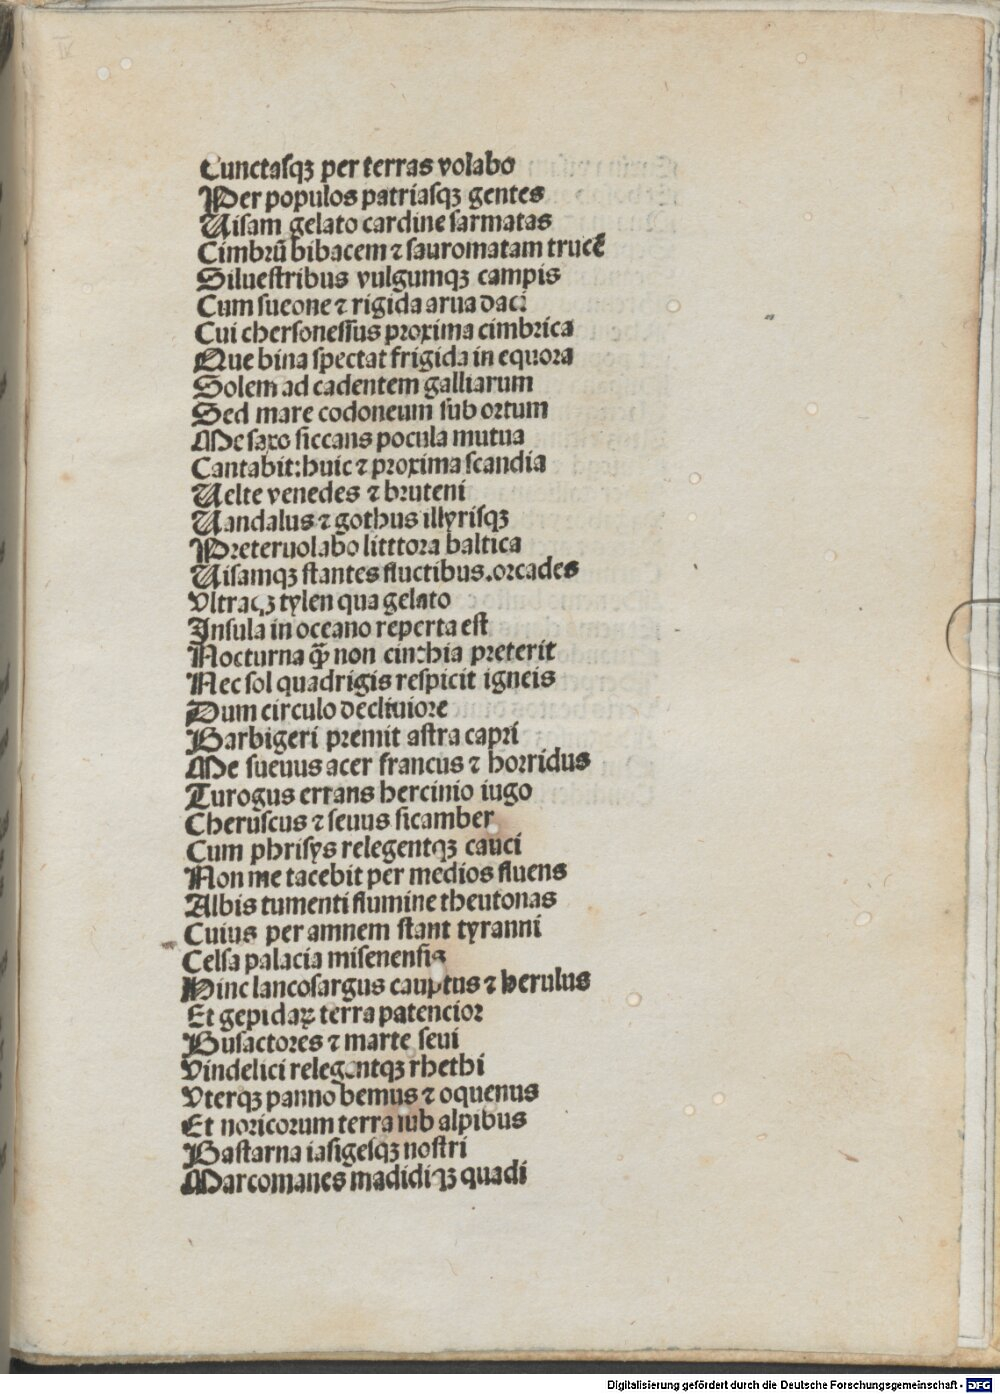 Cunctasqꝫ per terras volabo
Per populos patriasqꝫ gentes
Uisam gelato cardine sarmatas
Cimbrū bibacem ⁊ sauromatam trucē
Siluestribus vulgumqꝫ campis
Cum sueone ⁊ rigida arua daci
Cui chersonessus proxima cimbrica
Que bina spectat frigida in equora
Solem ad cadentem galliarum
Sed mare codoneum sub ortum
Me saxo siccans pocula mutua
Cantabit: huic ⁊ proxima scandia
Uelte venedes ⁊ bruteni
Uandalus ⁊ gothus illyrisqꝫ
Preteruolabo litttora baltica
Uisamqꝫ stantes fluctibus.orcades
Vltraqꝫ tylen qua gelato
Insula in oceano reperta est
Nocturna qꝫ̄ non cinthia preterit
Nec sol quadrigis respicit igneis
Dum circulo decliuiore
Barbigeri premit astra capri
Me sueuus acer francus ⁊ horridus
Turogus errans hercinio iugo
Cheruscus ⁊ seuus sicamber
Cum phrisys relegentqꝫ cauci
Non me tacebit per medios fluens
Albis tumenti flumine theutonas
Cuius per amnem stant tyranni
Celsa palacia misenensis
Hinc lancosargus cauptus ⁊ herulus
Et gepidaꝝ terra patencior
Busactores ⁊ marte seui
Vindelici relegentqꝫ rhethi
Vterqꝫ panno bemus ⁊ oquenus
Et noricorum terra sub alpibus
Bastarna iasigesqꝫ nostri
Marcomanes madidiqꝫ quadi
Digitalisierung gefördert durch die Deutsche Forschungsgemeinschaft - DFG